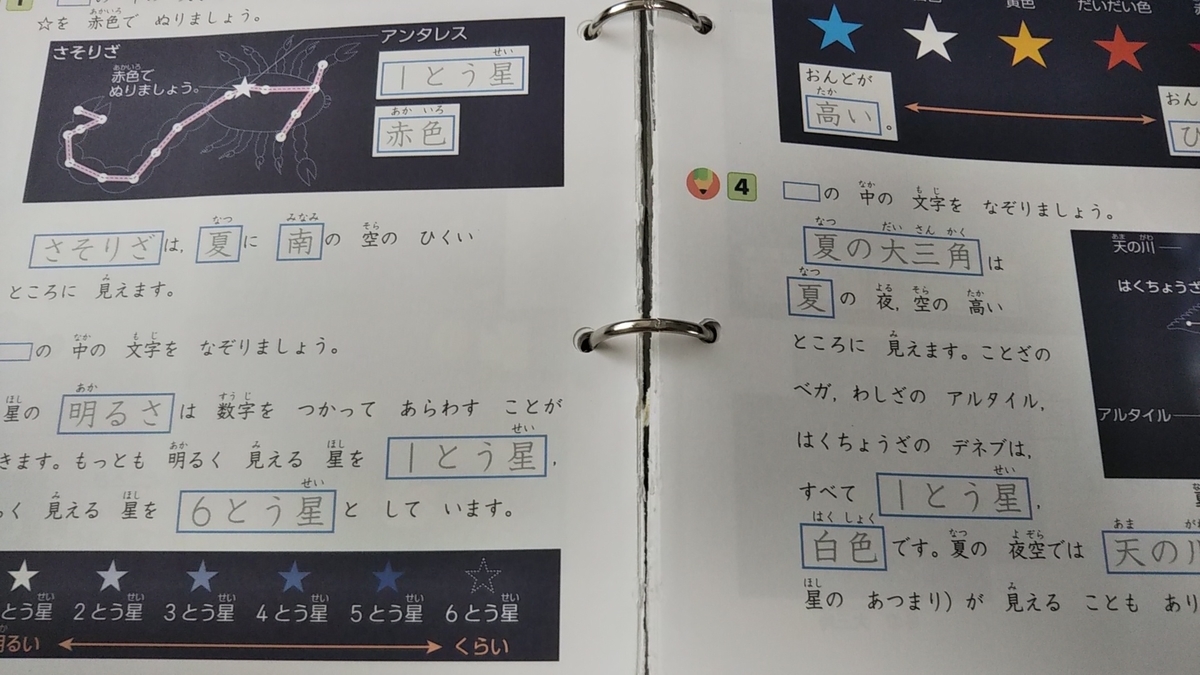 1
☆を 赤色で ぬりましょう。
さそりざ
赤色で
ぬりましょう。
アンタレス
1とう星
赤色
さそりざは，夏に 南の 空の ひくい
ところに 見えます。
の 中の 文字を なぞりましょう。
星の 明るさは 数字を つかって あらわす ことが
きます。もっとも 明るく 見える 星を 1とう星，
く 見える 星を 6とう星と して います。
とう星 2とう星 3とう星 4とう星 5とう星 6とう星
るい くらい
黄色 だいだい色
おんどが
高い。
おん
ひ
4
の 中の 文字を なぞりましょう。
夏の大三角は
夏の 夜，空の 高い
ところに 見えます。ことざの
ベガ，わしざの アルタイル，
はくちょうざの デネブは，
すべて 1とう星，
白色です。夏の 夜空では 天の川
星の あつまり）が 見える ことも あり
天の川
はくちょうざ
アルタイル